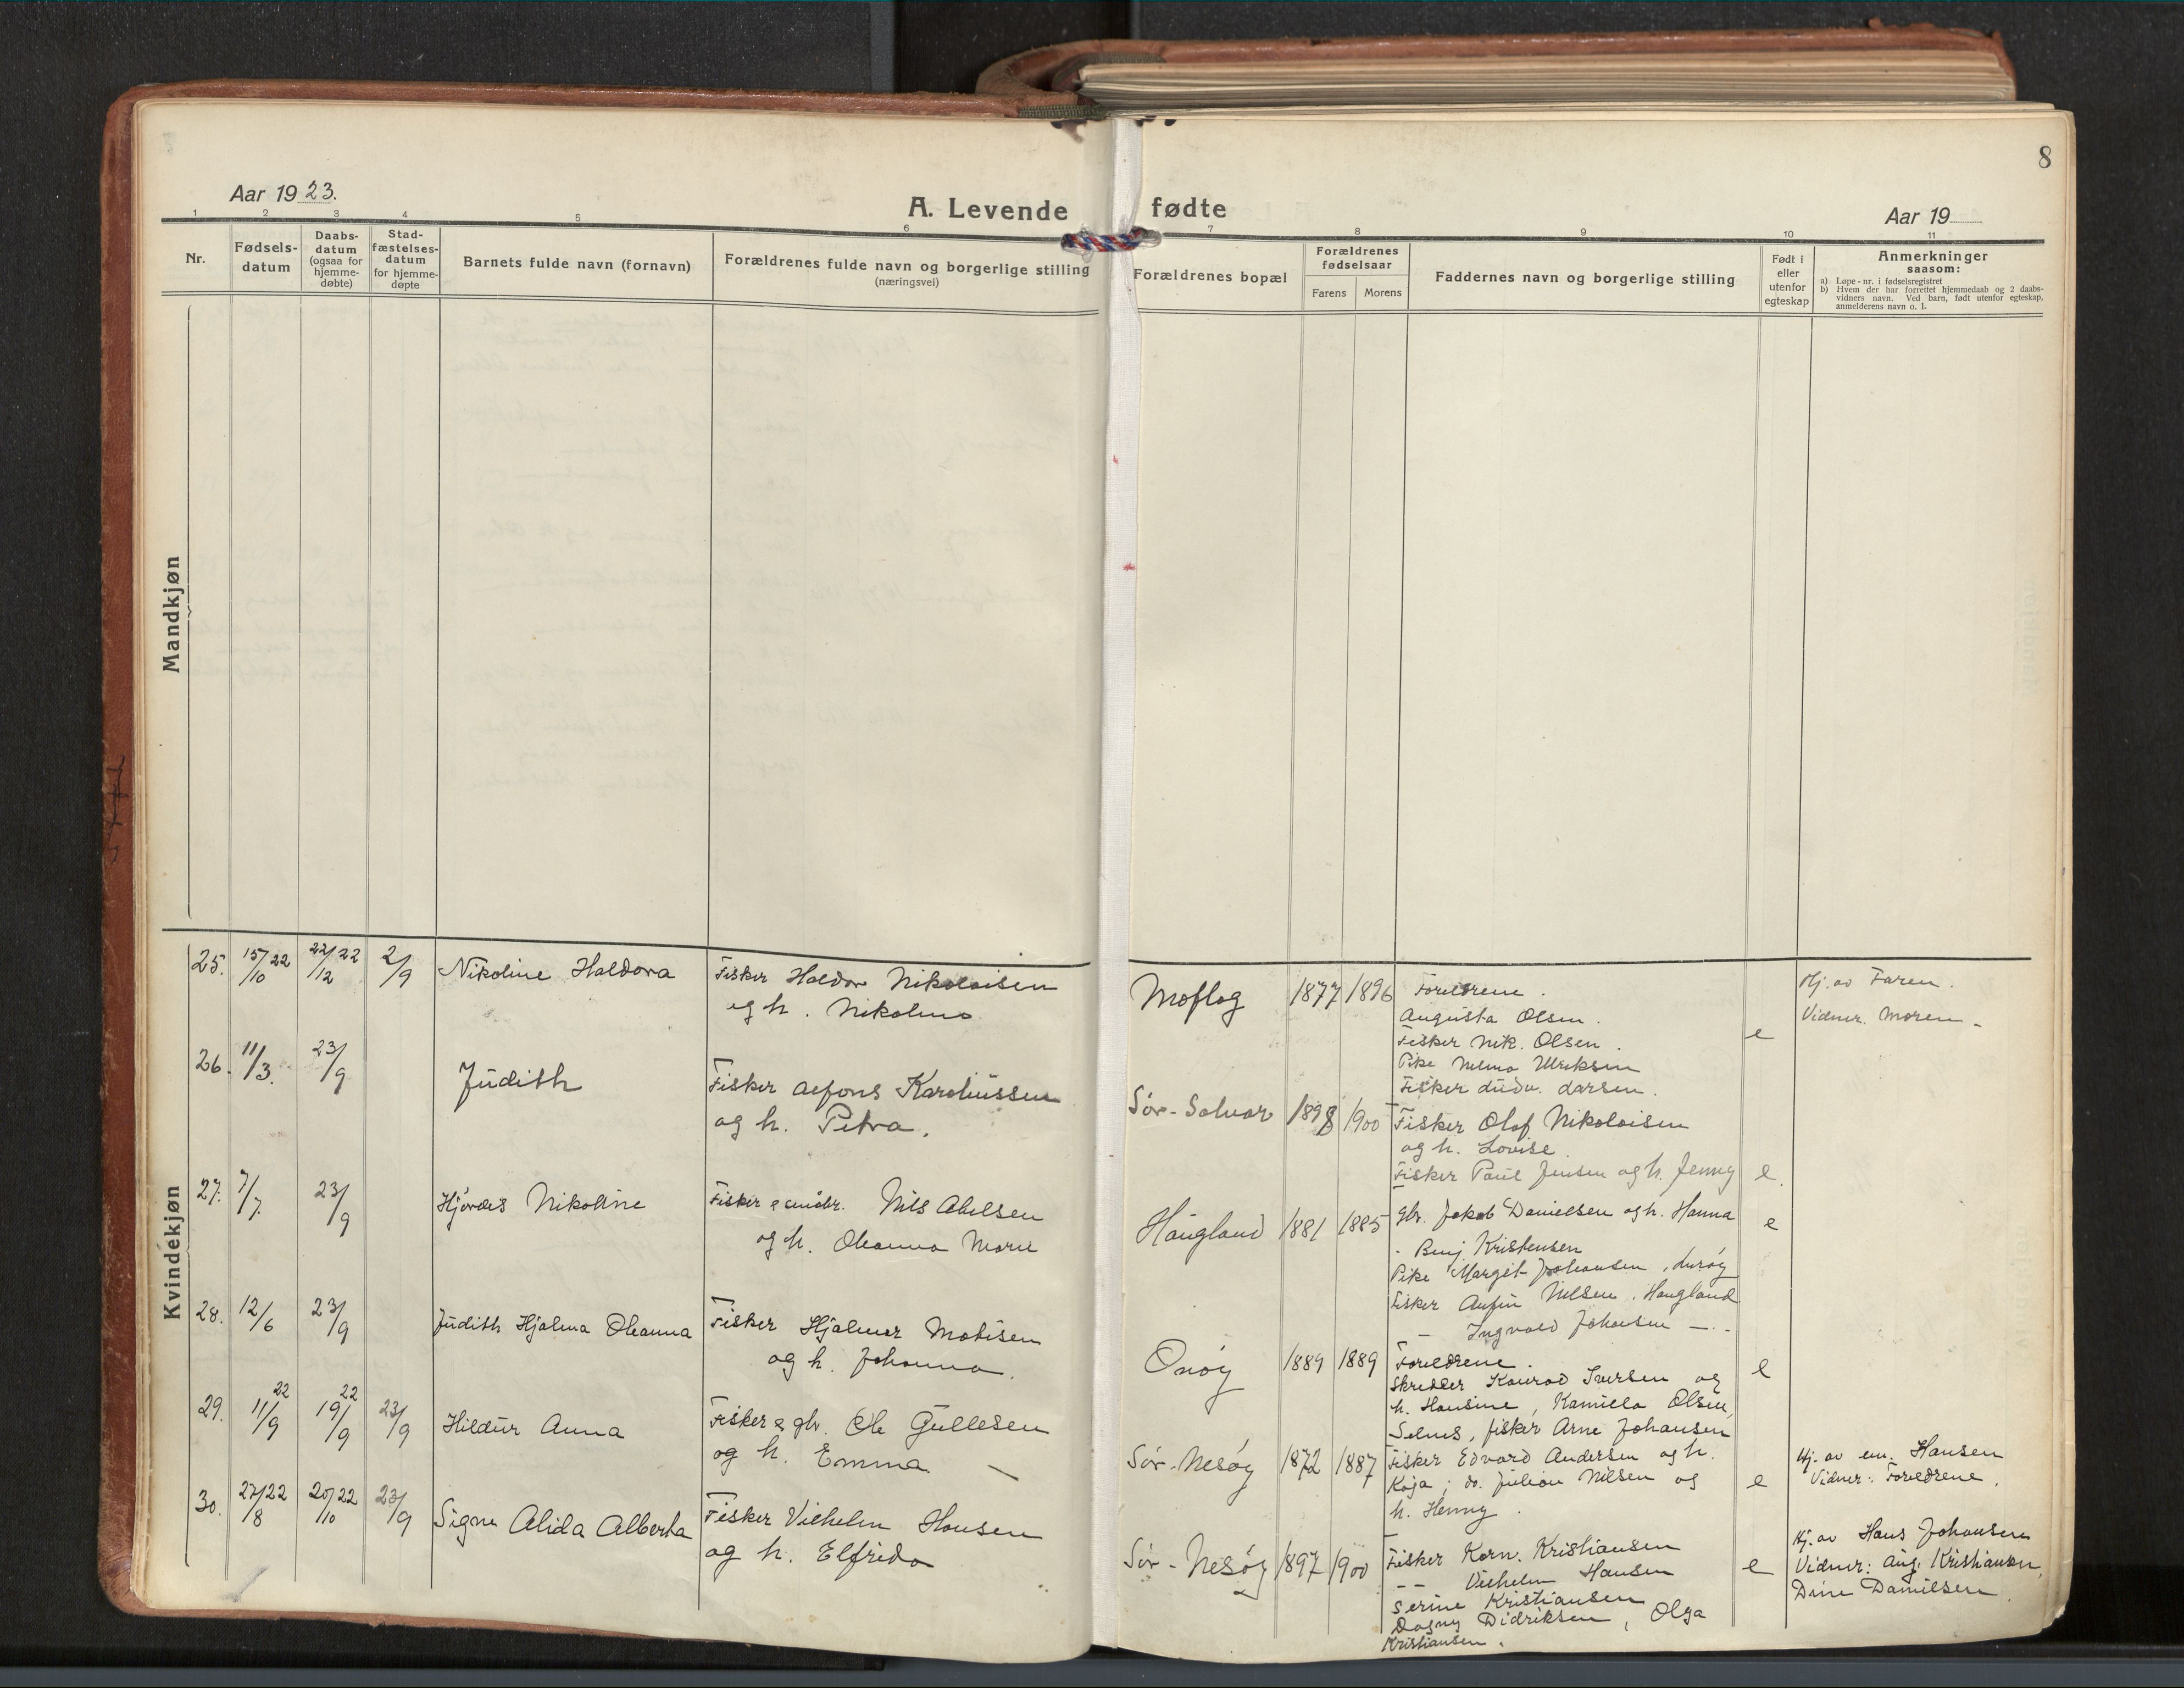 8
Aar 1923.
A. Levende fødte
Aar 19
1 2 3 4 5 6 7 8 9 10 11
Nr.
Fødsels-
datum
Daabs-
datum
(ogsaa for
hjemme-
døbte)
Stad-
fæstelses-
datum
for hjemme-
døpte
Barnets fulde navn (fornavn)
Forældrenes fulde navn og borgerlige stilling
(næringsvei)
Forældrenes bopæl
Forældrenes
fødselsaar
Farens Morens
Faddernes navn og borgerlige stilling
Født i
eller
utenfor
egteskap
Anmerkninger
saasom:
a) Løpe-nr. i fødselsregistret
b) Hvem der har forrettet hjemmedaab og 2 daabs-
vidners navn. Ved barn, født utenfor egteskap,
anmelderens navn o. l.
Mandkjøn
Kvindekjøn
25. 15/10 22 22/12 22 2/9 Nikoline Haldora
Fisker Haldor Nikolaisen
og h. Nikoline
Moflag 1877 1896
Foreldrene.
Augusta Olsen.
Fisker Nik. Olsen.
Pike Ulriksen
Fisker Ludv. Larsen.
e
Hj. av Faren.
Vidner. Moren
26. 11/3. 23/9 Judith
Fisker Alfons Karoliussen
og h. Petra.
Sør-Solvær 1898 1900
Fisker Olaf Nikolaisen
og h. Lovise.
Fisker Paul Jensen og h. Jenny
e.
27. 7/7. 23/9 Hjørdis Nikoline
Fisker & småbr. Nils Abelsen
og h. Oleanna Marie
Haugland 1881 1885
gbr. Jakob Danielsen og h. Hanna
- Benj. Kristensen
Pike Margit Johansen, Lurøy
Fisker Anfin Nilsen, Haugland
— Ingvald Johansen — -
e
28. 12/6 23/9 Judith Hjalma Oleanna
Fisker Hjalmar Mathisen
og h. Johanna.
Onøy 1889 1889
Foreldrene.
Skredder Konrad Iversen og
h. Hansine, Kamilla Olsen,
Selnes, fisker Arne Johansen
e
29. 11/9 22 19/9 22 23/9 Hildur Anna
Fisker & gbr. Ole Gullesen
og h. Emma. —
Sør-Nesøy 1872 1887
Fisker Edvard Andersen og h.
Kaja; do. Julian Nilsen og
h. Henny.
e
Hj. av em. Hansen
Vidner: Foreldrene.
30. 27/8 22 20/10 22 23/9 Signe Alida Alberta
Fisker Vilhelm Hansen
og h. Elfrida
Sør-Nesøy 1897 1900
Fisker Korn. Kristiansen
-- Vilhelm Hansen
Serine Kristiansen
Dagny Didriksen, Olga
Kristiansen.
e
Hj. av Hans Johansen
Vidner: Aug. Kristiansen,
Dine Danielsen.